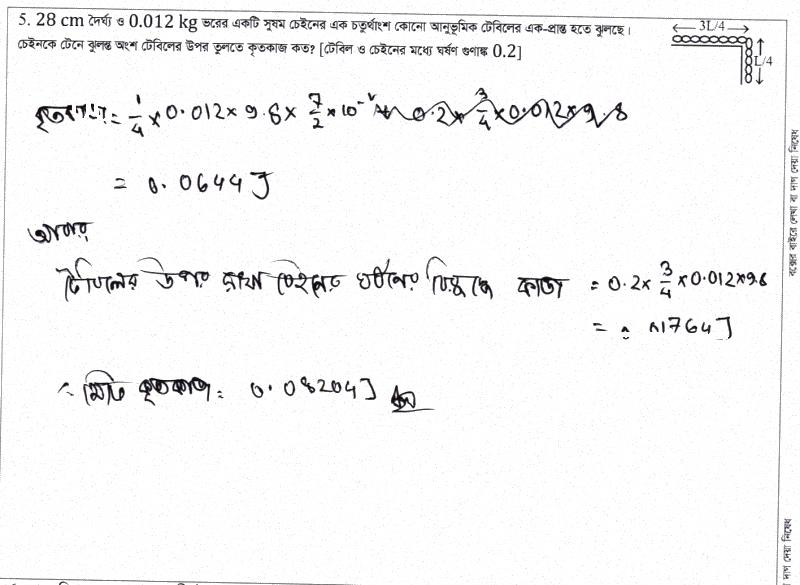 5. 28 cm দৈর্ঘ্য ও 0.012 kg ভরের একটি সুষম চেইনের এক চতুর্থাংশ কোনো আনুভূমিক টেবিলের এক-প্রান্ত হতে ঝুলছে।
চেইনকে টেনে ঝুলন্ত অংশ টেবিলের উপর তুলতে কৃতকাজ কত? [টেবিল ও চেইনের মধ্যে ঘর্ষণ গুণাঙ্ক 0.2]
3L/4
L/4
কৃতকাজ = 1/4 × 0.012 × 9.8 × 7/2 × 10⁻²
= 0.0644 J
আবার
টেবিলের উপর রাখা চেইনের ঘর্ষনের বিরুদ্ধে কাজ = 0.2 × 3/4 × 0.012 × 9.8
= 0.01764 J
∴ মোট কৃতকাজ = 0.08204 J
বক্সের বাইরে লেখা বা দাগ দেয়া নিষেধ
দাগ দেয়া নিষেধ